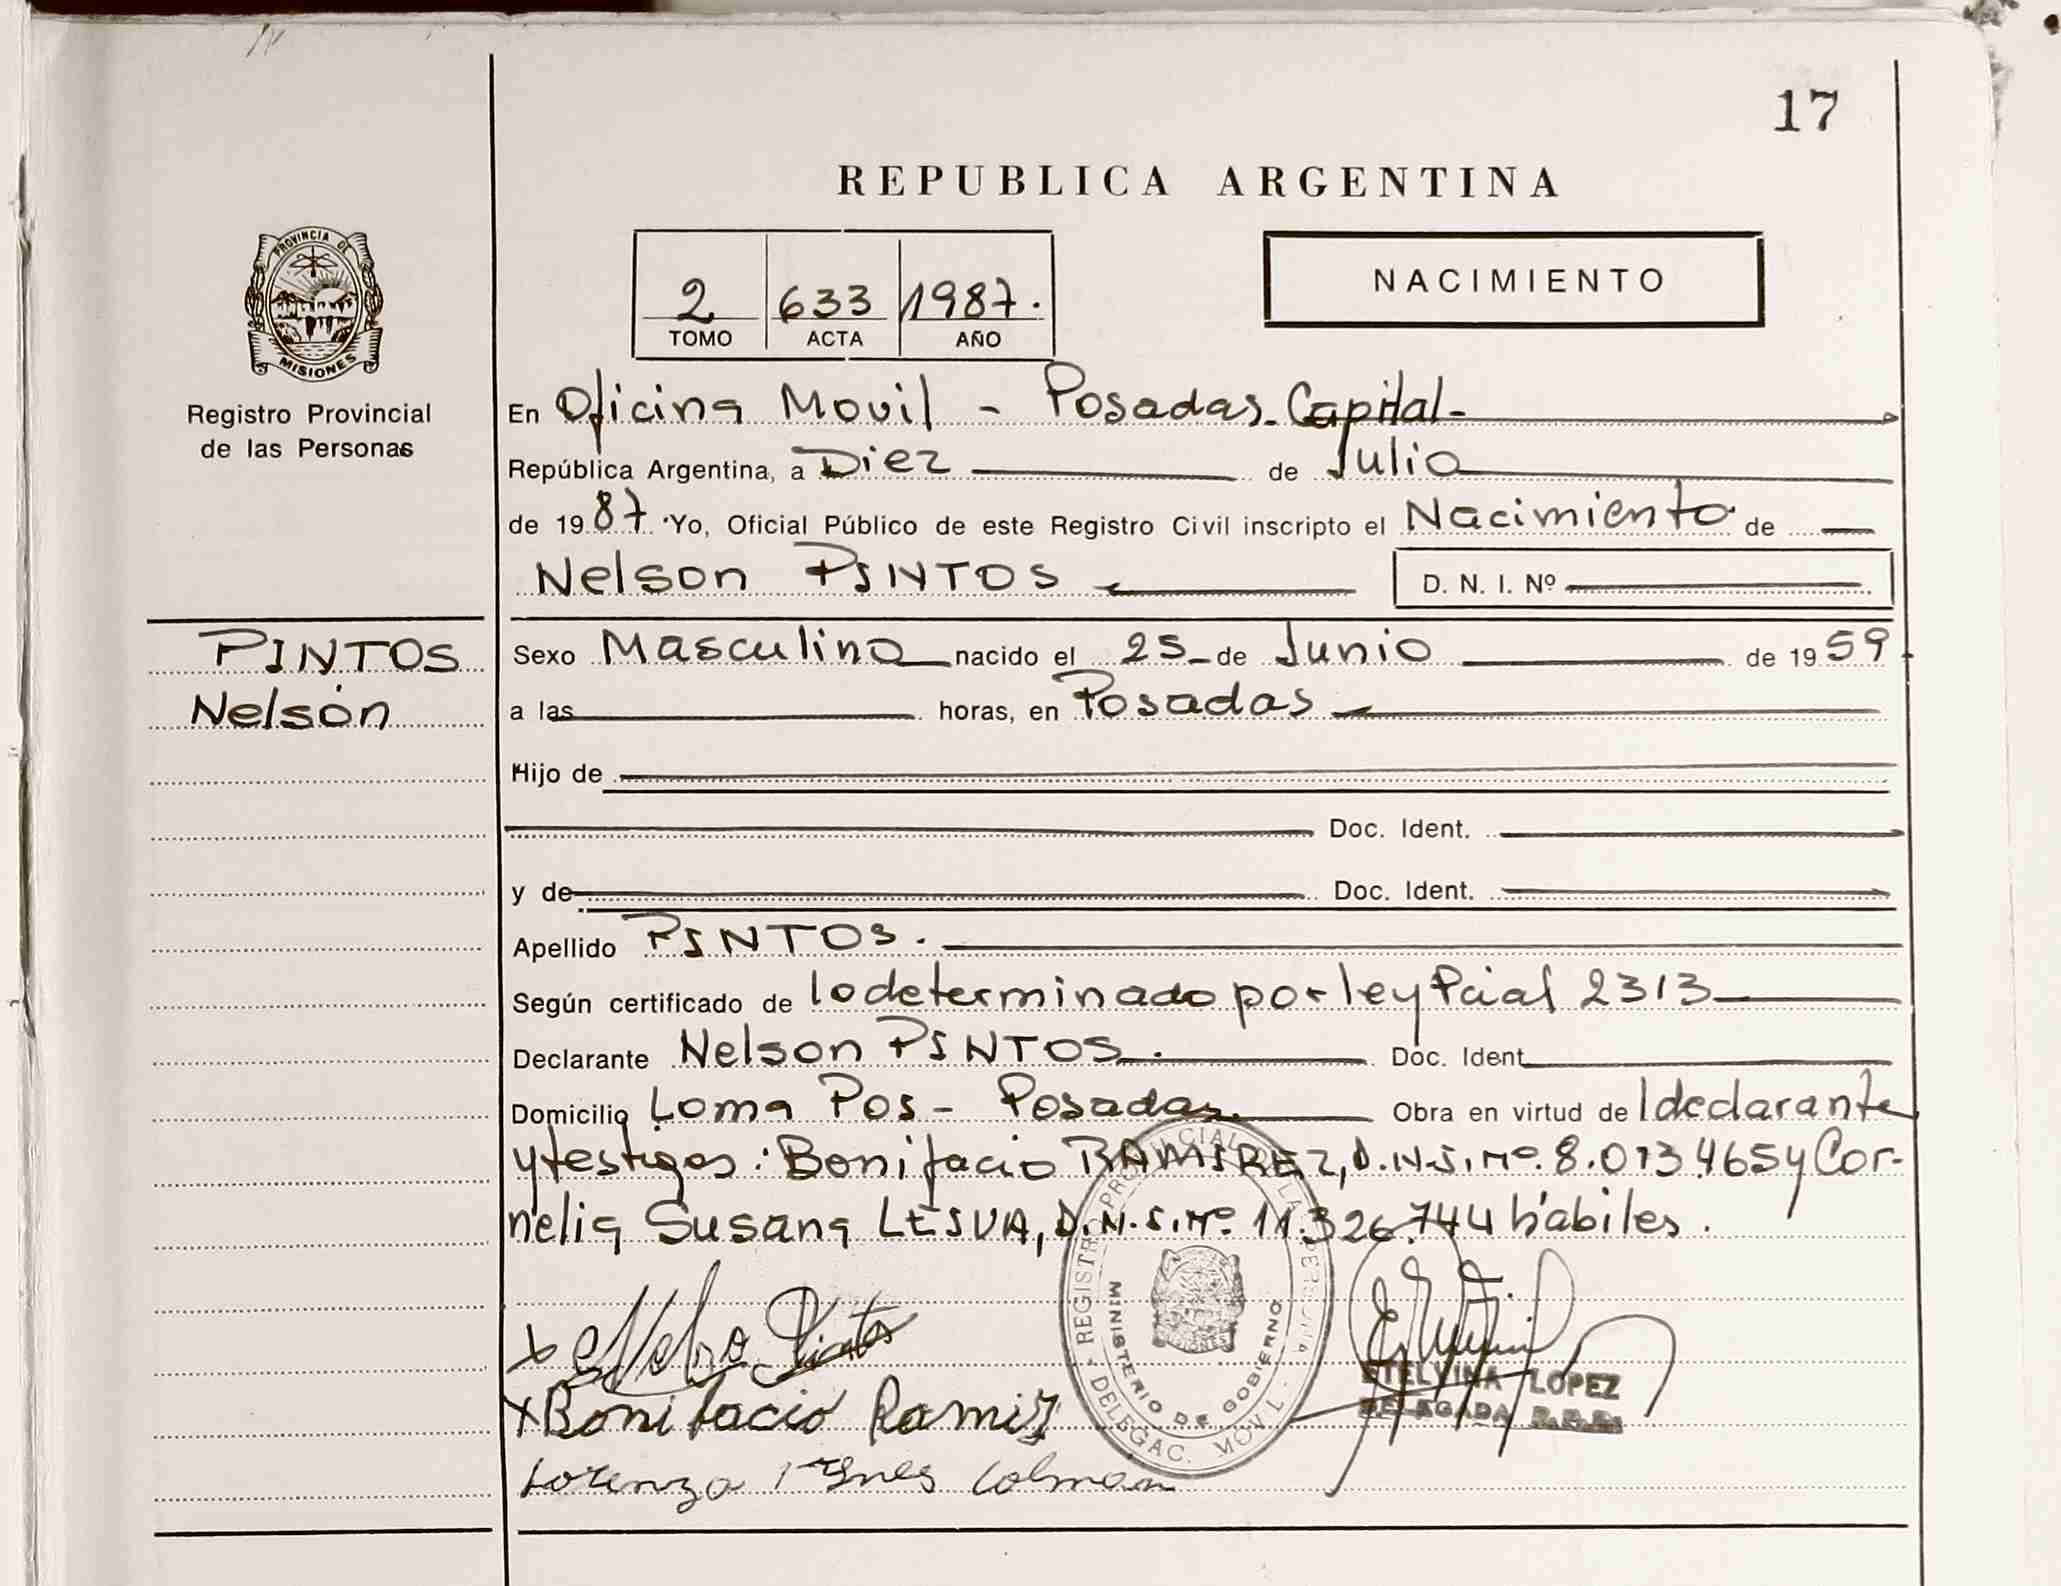 17
REPUBLICA ARGENTINA
PROVINCIA DE
MISIONES
Registro Provincial
de las Personas
2 633 1987.
TOMO ACTA AÑO
NACIMIENTO
En Oficina Movil - Posadas - Capital -
República Argentina, a Diez de Julio
de 1987 Yo, Oficial Público de este Registro Civil inscripto el Nacimiento de
Nelson PINTOS D. N. I. Nº
PINTOS
Nelson
Sexo Masculino nacido el 25 de Junio de 1959
a las horas, en Posadas
Hijo de
Doc. Ident.
y de Doc. Ident.
Apellido PINTOS.
Según certificado de lo determinado por ley Pcial 2313
Declarante Nelson PINTOS. Doc. Ident
Domicilio Loma Pos - Posadas. Obra en virtud de l declarante
y testigos: Bonifacio RAMIREZ, D.N.I. Nº. 8.013.465 y Cor-
nelia Susana LEIVA, D.N.I. Nº. 11.326.744 hábiles.
REGISTRO PROVINCIAL DE LAS PERSONAS
MINISTERIO DE GOBIERNO
DELEGAC. MOVIL
x Nelso Pintos
ETELVINA LOPEZ
DELEGADA R.P.P.
x Bonifacio Ramirz
Lorenza Ines Colman